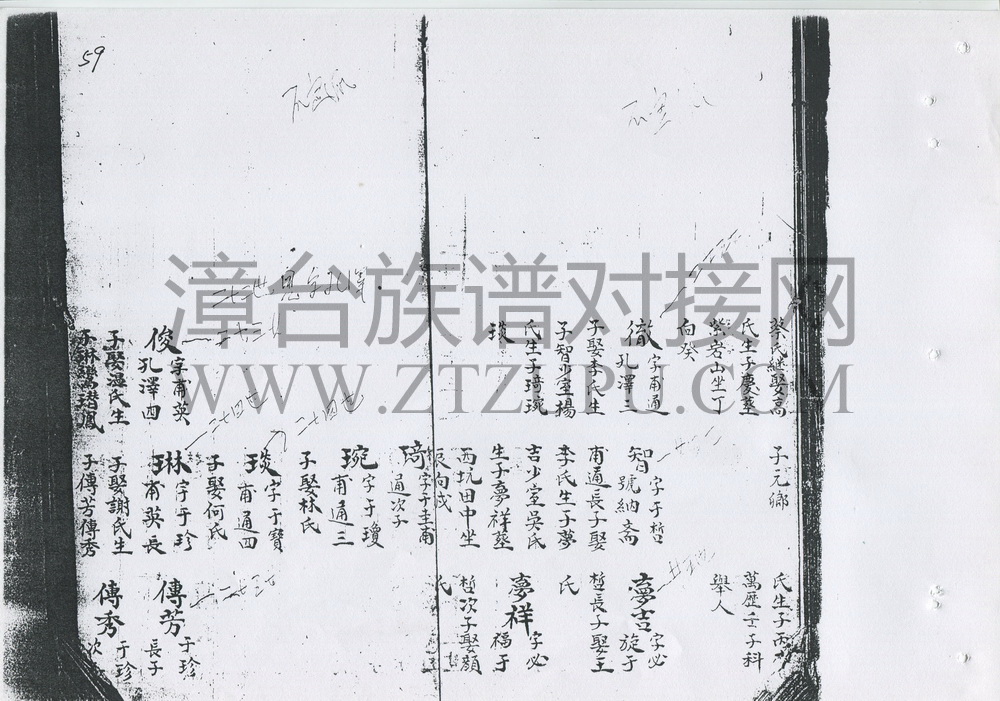 59
蔡氏繼娶高
氏生子慶葬
紫岩山坐丁
向癸
徹字甫通
孔澤三
子娶李氏生
子智少室楊
氏生子琦琬
琰
俊字甫英
孔澤四
子娶溫氏生
子琳
子元鄉
智字于哲
號納斋
甫通長子娶
李氏生子夢
吉少室吳氏
生子夢祥葬
西坑田中坐
向戌
琦字于圭甫
通次子
琬字于瓊
甫通三
子娶林氏
琰字于寶
甫通四
子娶何氏
琳字于珍
甫英長
子娶謝氏生
子傳芳傳秀
氏生子丙
萬歷壬子科
舉人
夢吉字必
旋于
哲長子娶王
氏
夢祥字必
福于
哲次子娶顏
氏
傳芳于珍
長子
傳秀于珍
次
漳台族谱对接网
WWW.ZTZUPU.COM